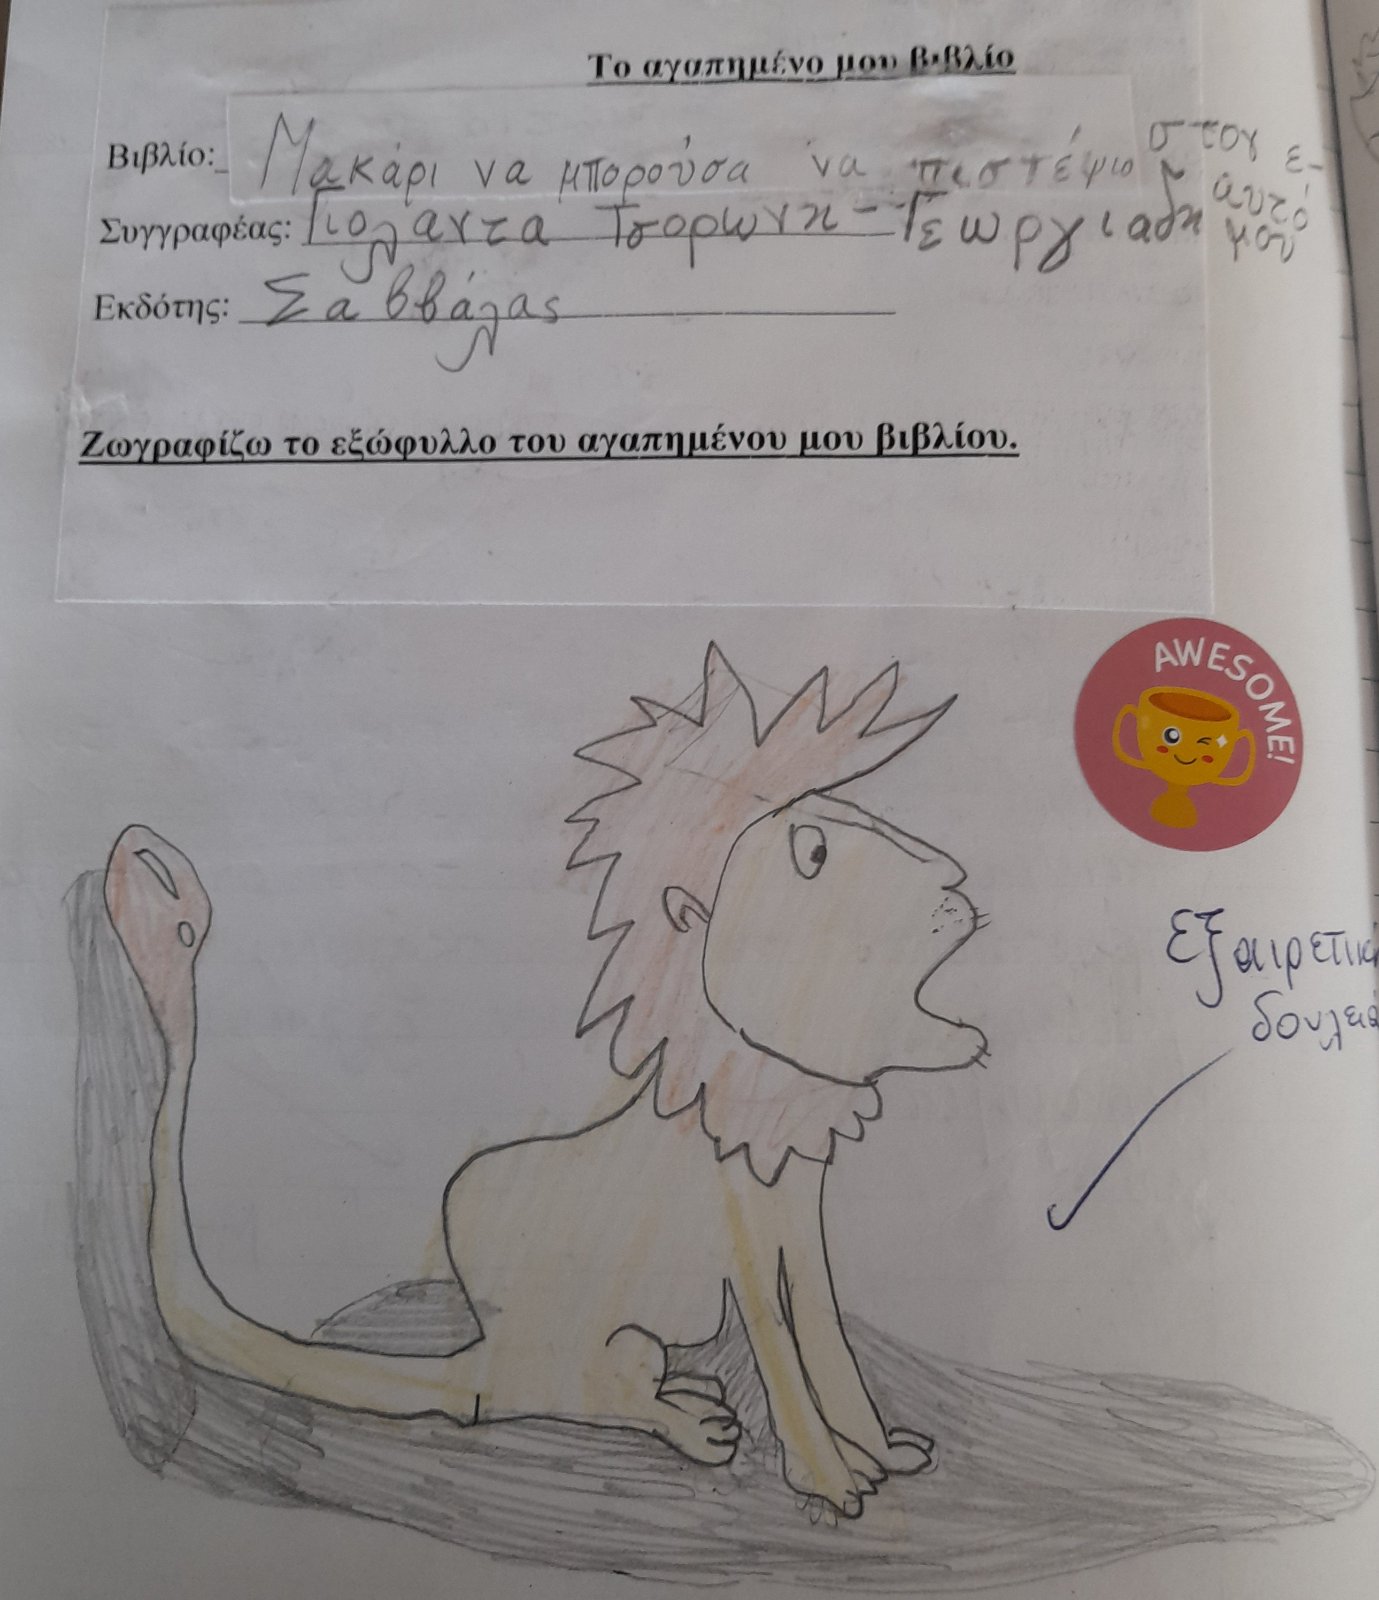 Το αγαπημένο μου βιβλίο
Βιβλίο: Μακάρι να μπορούσα να πιστέψω στον ε-
αυτό
μου
Συγγραφέας: Γιολάντα Τσορωνη-Γεωργιαδη
Εκδότης: Σαββάλας
Ζωγραφίζω το εξώφυλλο του αγαπημένου μου βιβλίου.
AWESOME!
Εξαιρετική
δουλειά